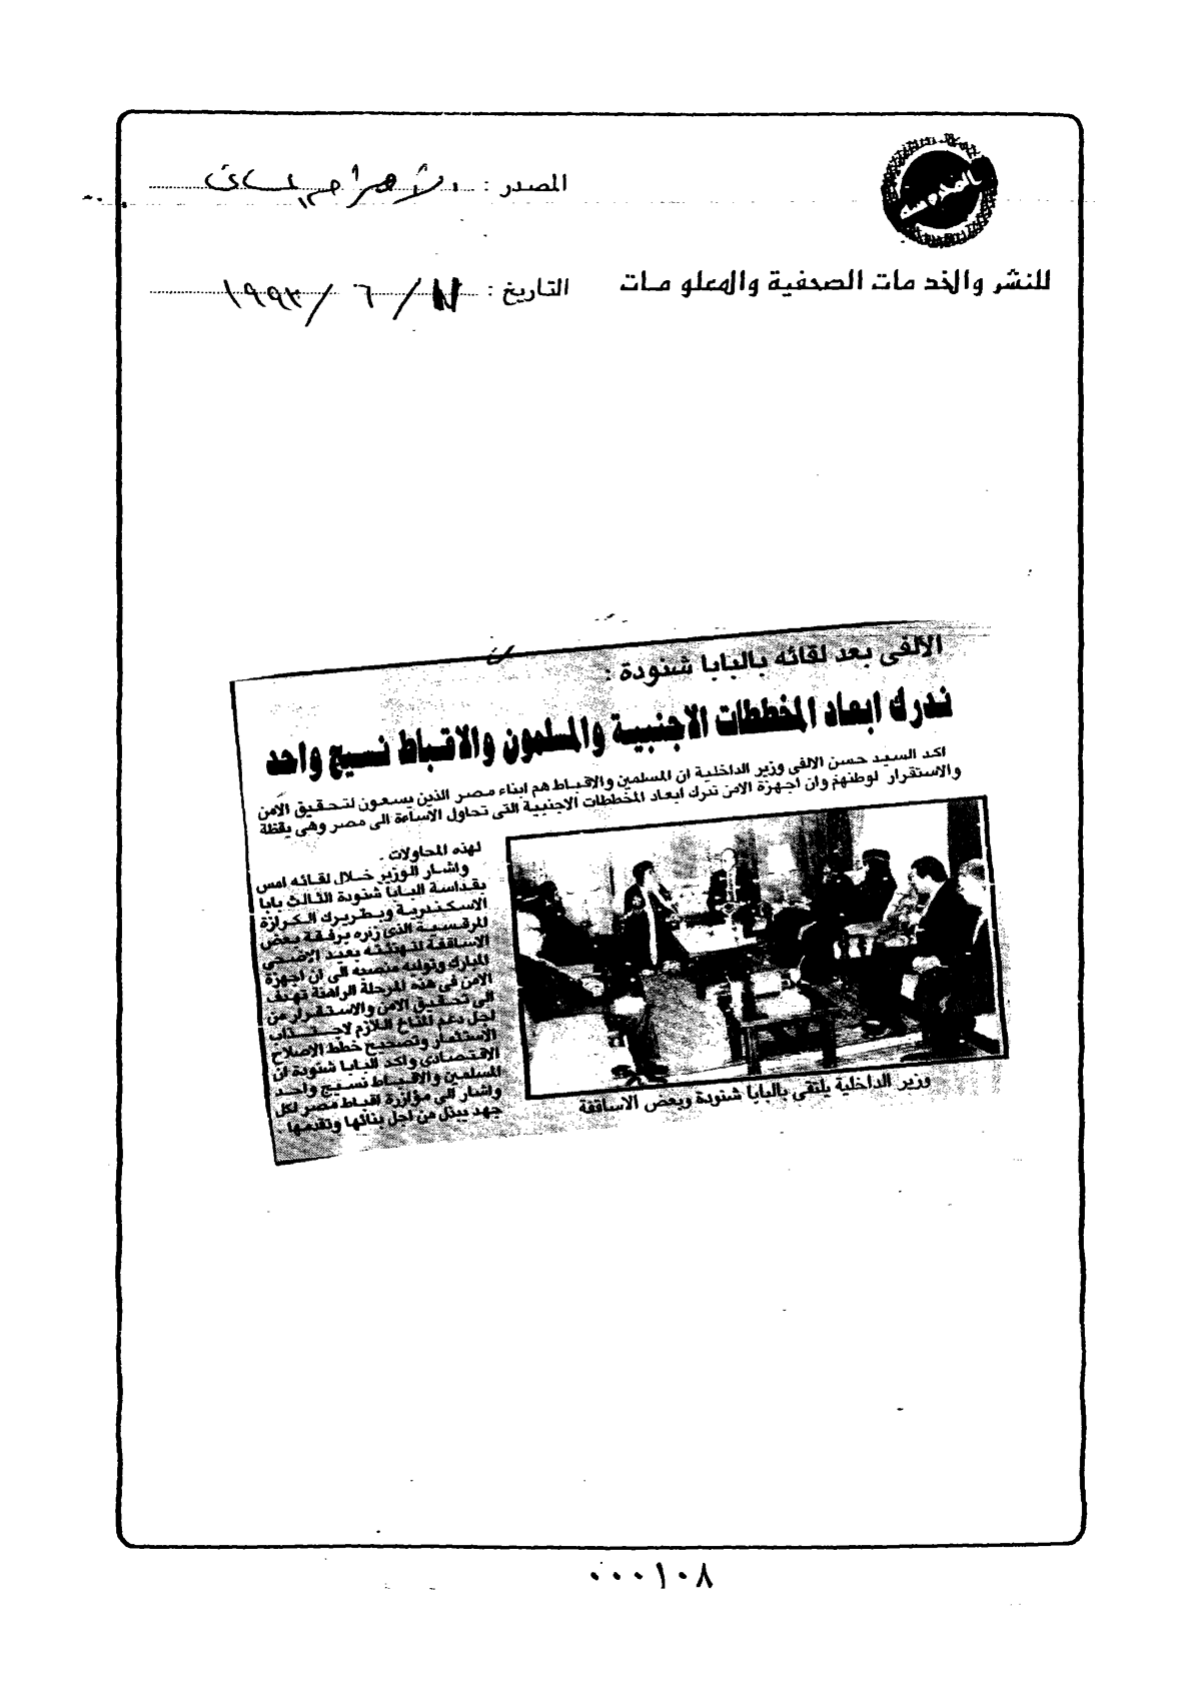 المحروسة
المصدر : الأهرام المسائى
للنشر والخدمات الصحفية والمعلومات
التاريخ : / ٦ / ١٩٩٣
الألفى بعد لقائه بالبابا شنودة :
ندرك ابعاد المخططات الاجنبية والمسلمون والاقباط نسيج واحد
اكد السيد حسن الالفى وزير الداخلية ان المسلمين والاقباط هم ابناء مصر الذين يسعون لتحقيق الأمن
والاستقرار لوطنهم وان اجهزة الامن تدرك ابعاد المخططات الاجنبية التى تحاول الاساءة الى مصر وهى يقظة
لهذه المحاولات .
واشار الوزير خلال لقائه امس
بقداسة البابا شنودة الثالث بابا
الاسكندرية وبطريرك الكرازة
المرقسية الذى زاره يرفقة بعض
الاساقفة لتهنئته بعيد الاضحى
المبارك وتوليه منصبه الى ان اجهزة
الامن فى هذه المرحلة الراهنة تهدف
الى تحقيق الامن والاستقرار من
اجل دعم المناخ اللازم لاجتذاب
الاستثمار وتصحيح خطط الاصلاح
الاقتصادى واكد البابا شنودة ان
المسلمين والاقباط نسيج واحد
واشار الى مؤازرة اقباط مصر لكل
جهد يبذل من اجل بنائها وتقدمها .
وزير الداخلية يلتقى بالبابا شنودة وبعض الاساقفة
٠٠٠١٠٨